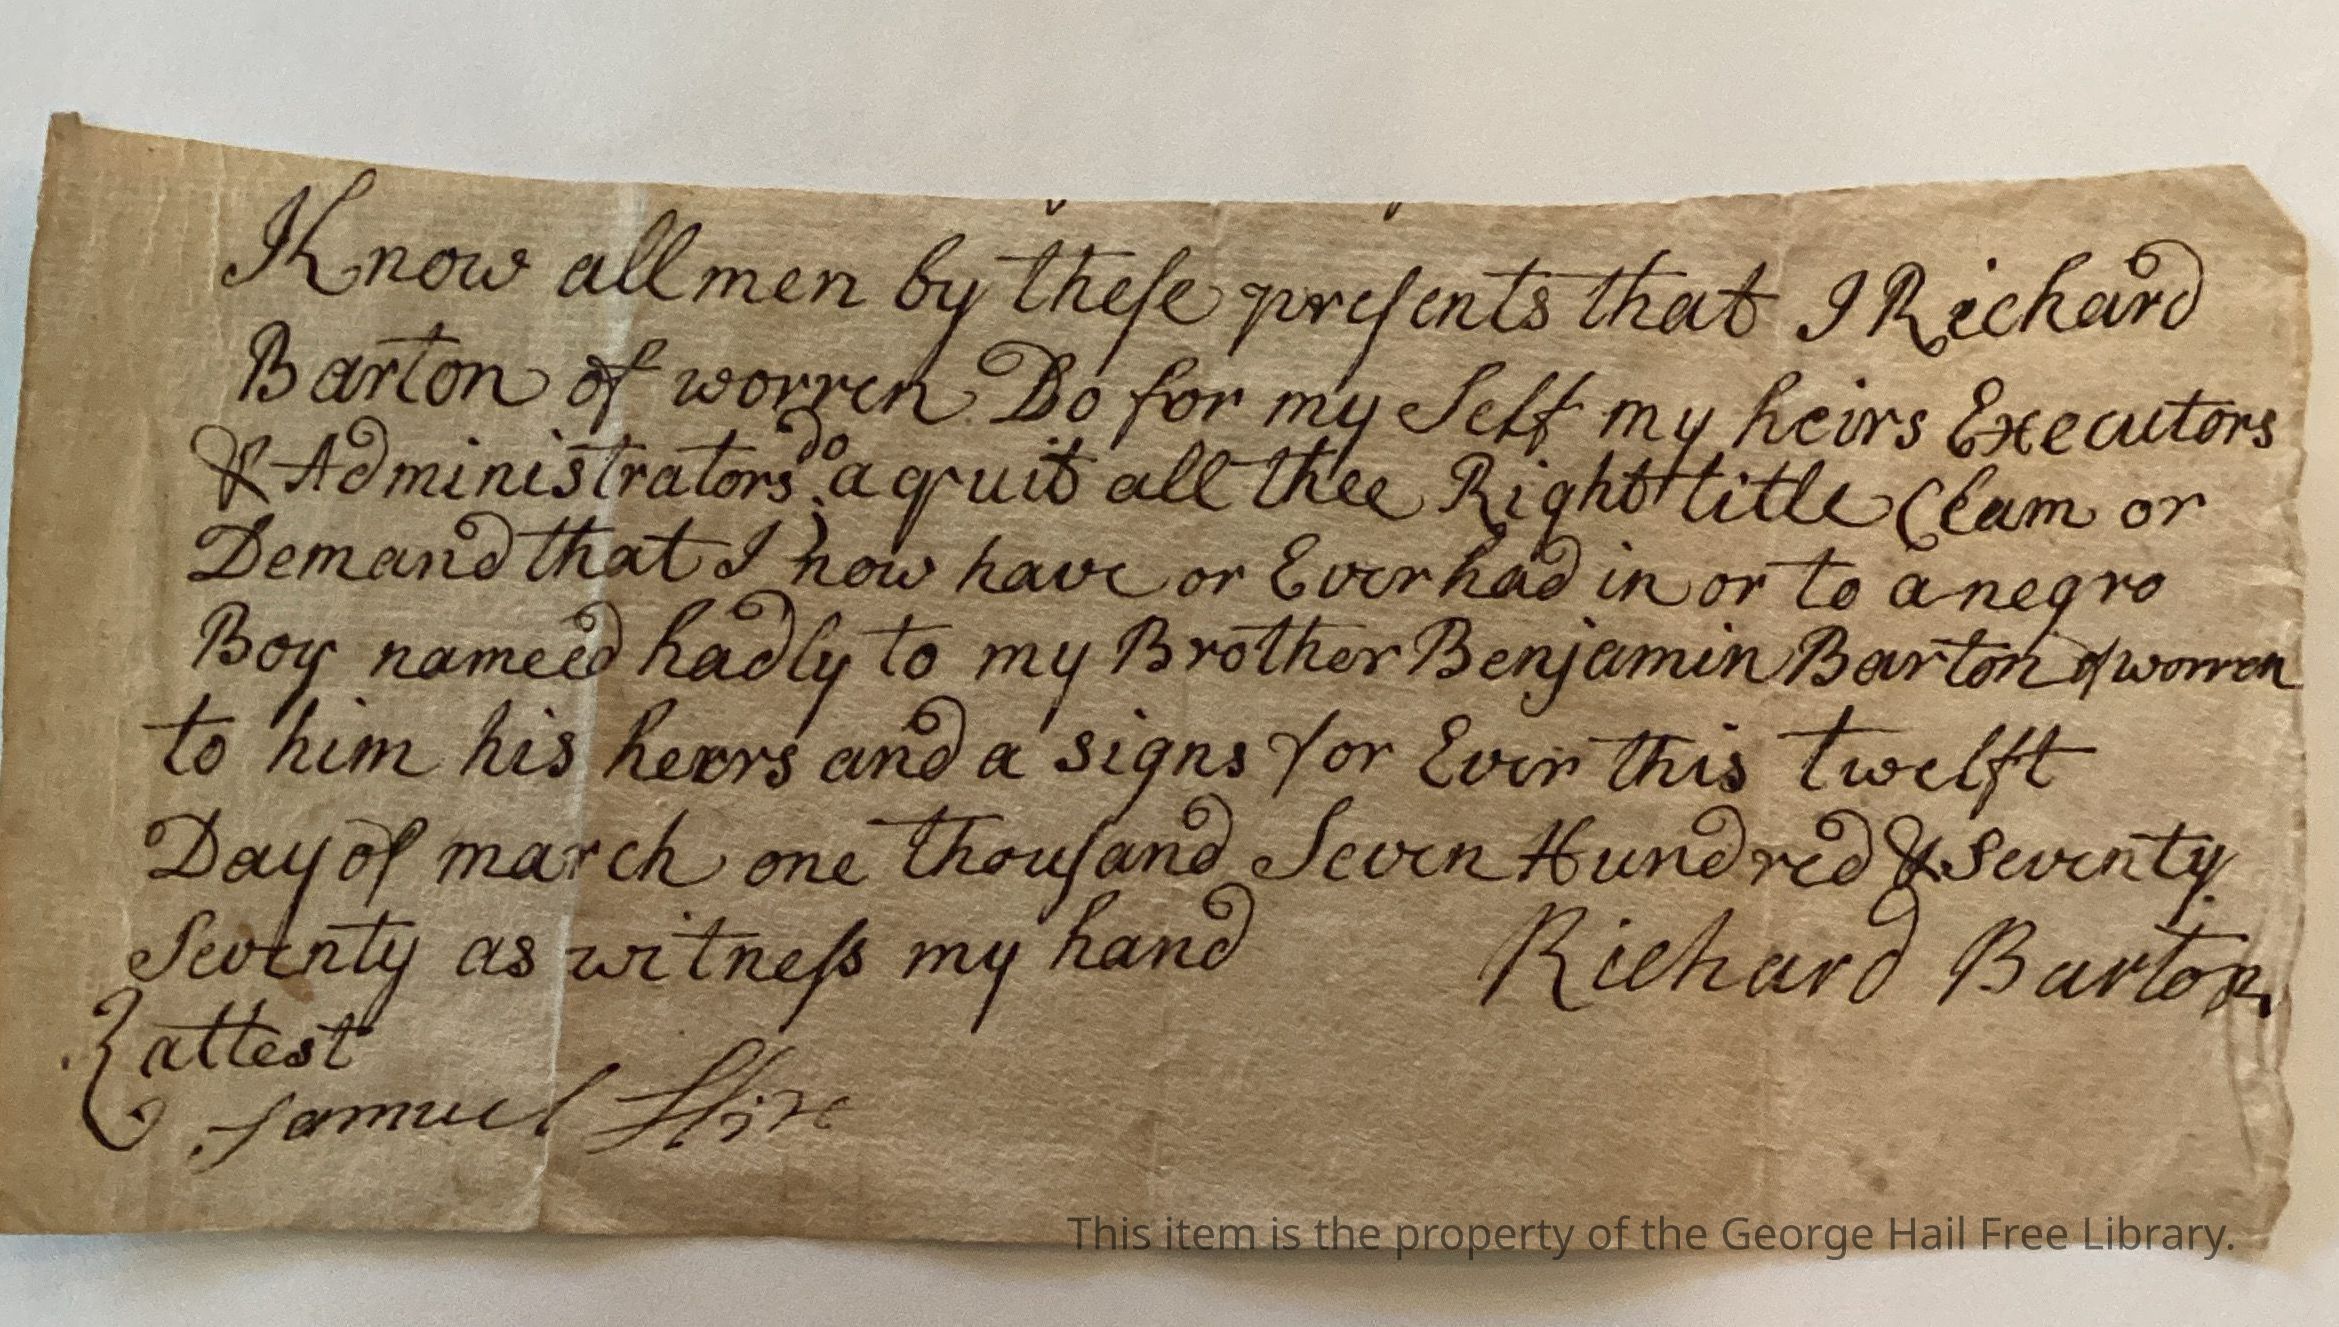 Know all men by these presents that I Richard
Barton of worren Do for my Self my heirs Executors
& Administrators do aquit all thee Right title Clam or
Demand that I now have or Ever had in or to a negro
Boy nameed hadly to my Brother Benjamin Barton of worren
to him his heirs and a signs for Ever this twelft
Day of march one thousand Seven Hundred & Seventy
Seventy as witness my hand Richard Barton
attest
Samuel
This item is the property of the George Hail Free Library.